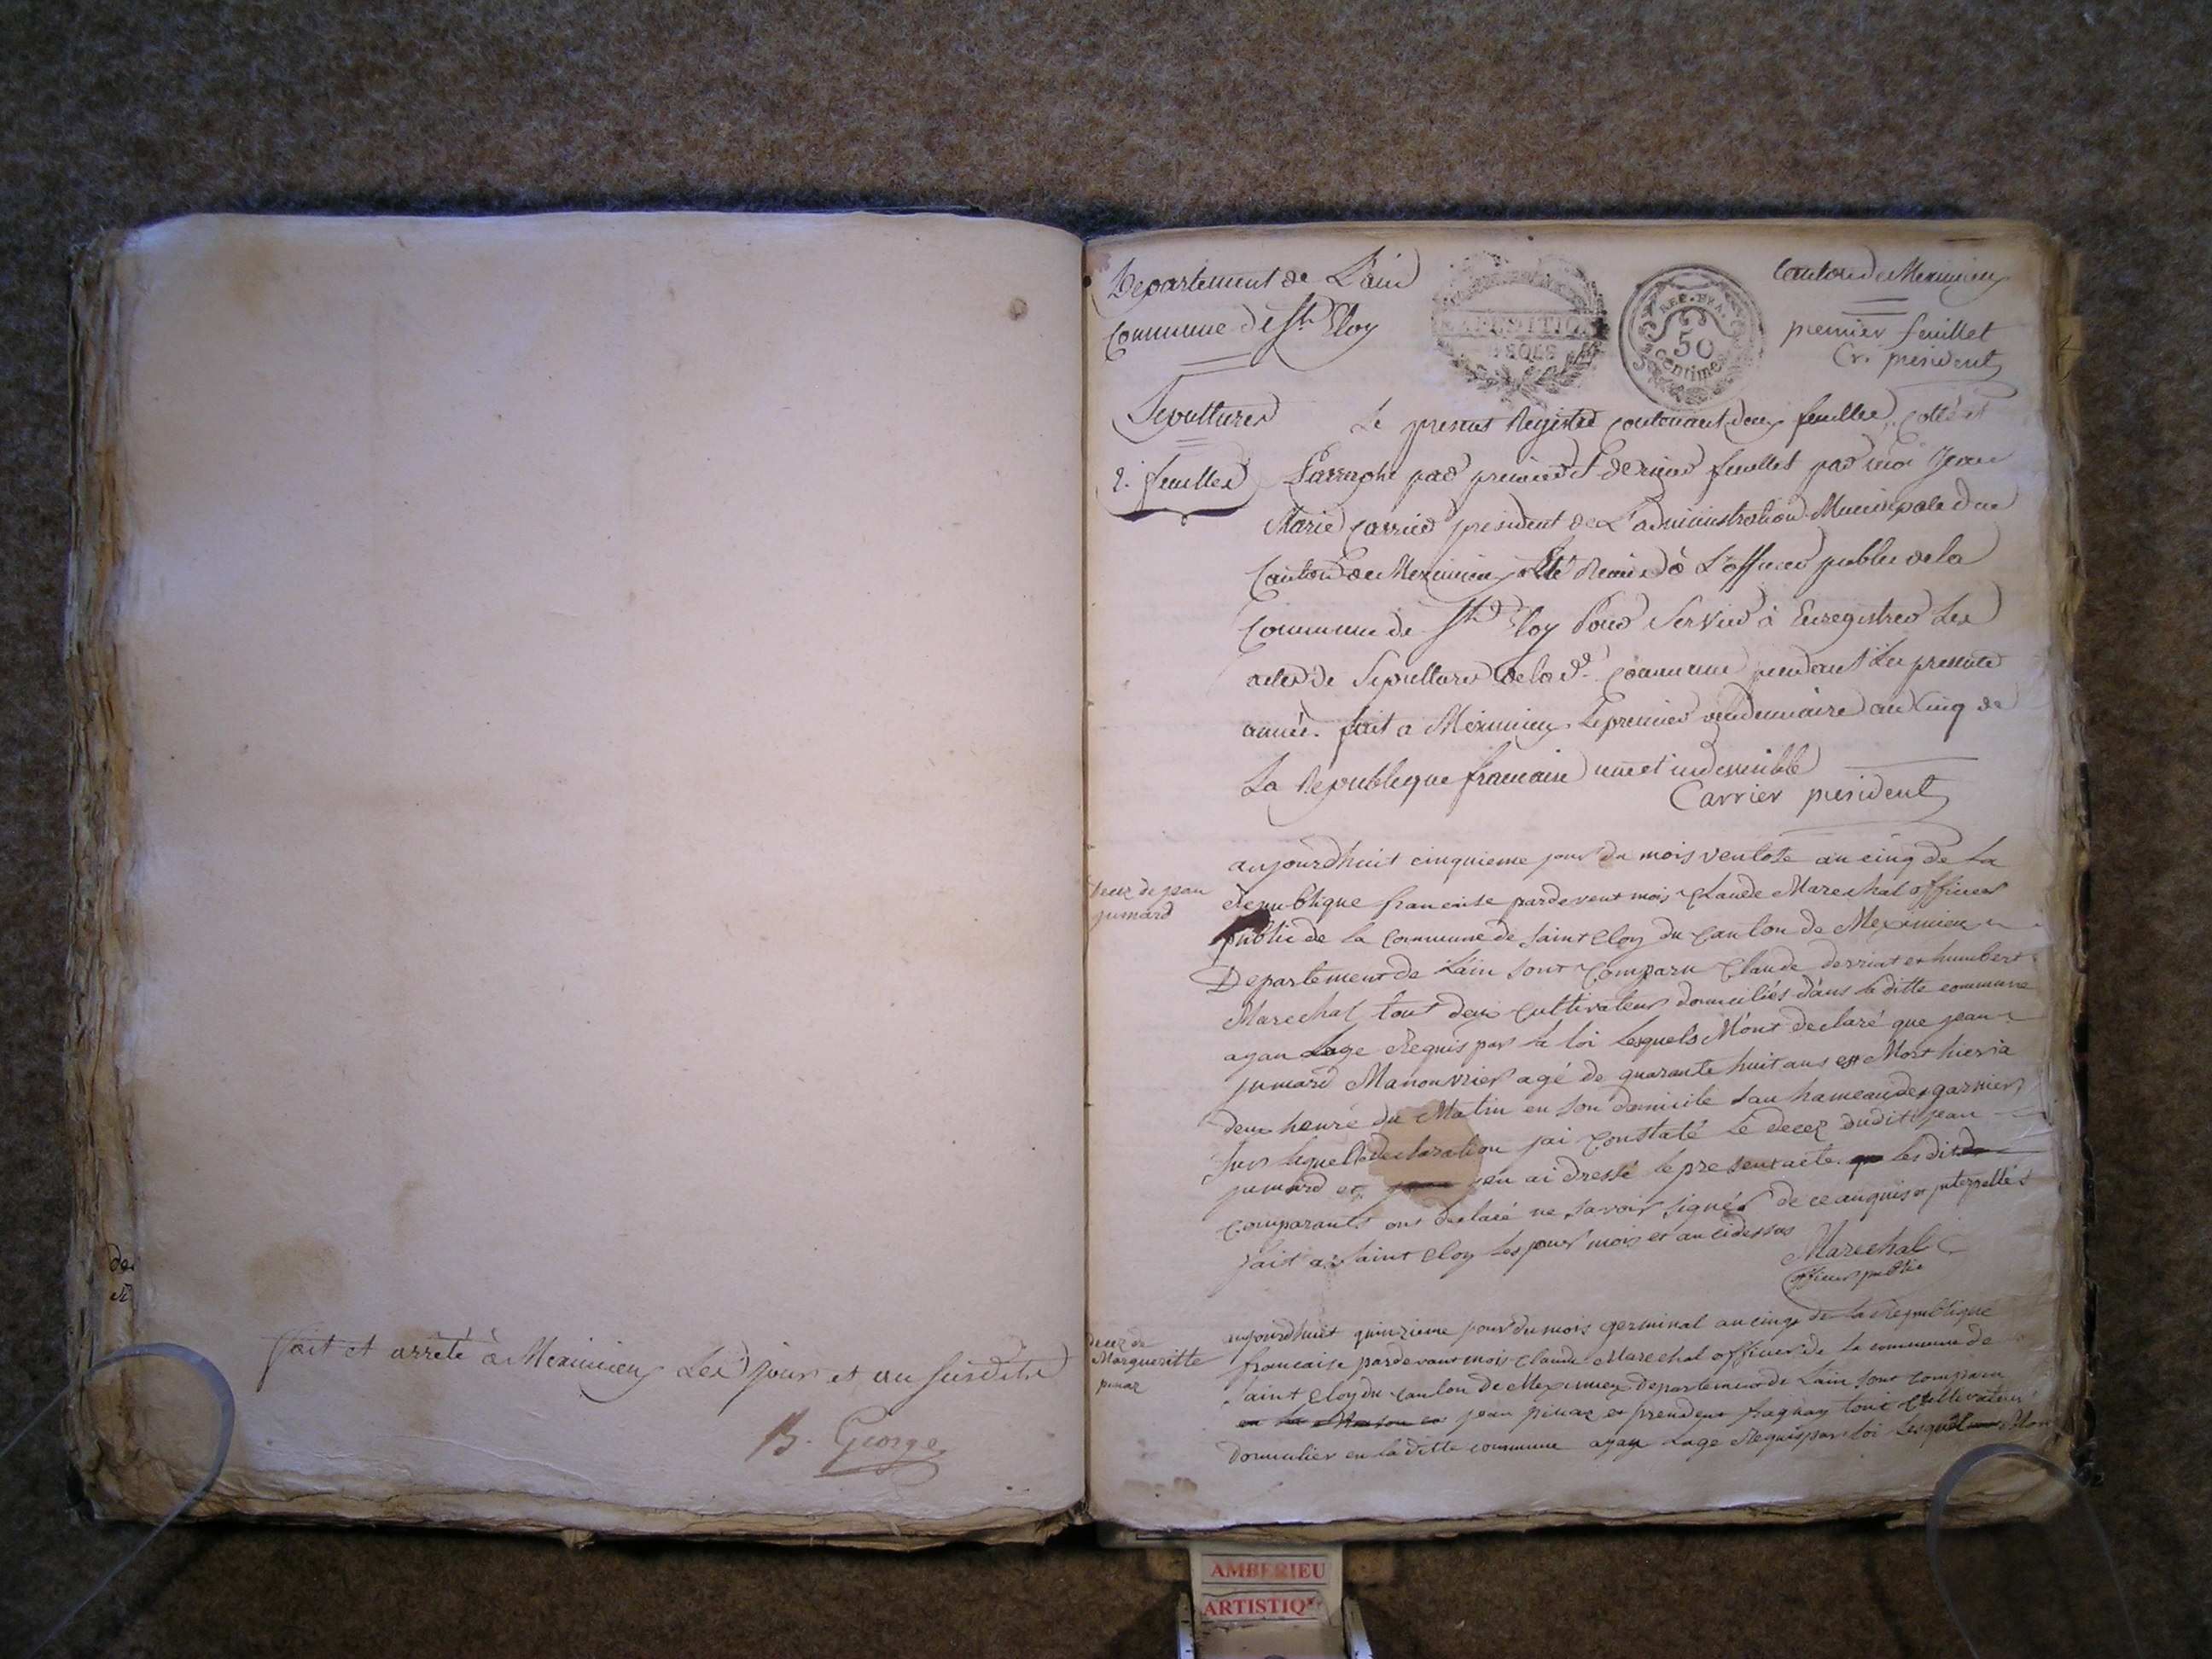 fait et arrêté à Meximieux Les jour et an susdits
B. George
Departement de L'ain
Commune de St Eloy
REP. FRA.
50
Centimes
Canton de Meximieux
premier feuillet
Cr. president
Sepultures
2. feuilles
Le present Registre contenant deux feuilles, cotté et
Parraphé par premier et dernier feuillet par moi Jean
Marie Carrier president de L'administration Municipale du
Canton de Meximieux a été Remis à L'officier public de la
Commune de St Eloy Pour Servir à Enregistrer Les
actes de Sepulture de lad. Commune pendant La presente
année. fait a Meximieux Le premier vendemiaire an Cinq de
La Republique francaise une et indivisible
Carrier president
decez de jean
jumard
aujourdhuit cinquieme jour du mois ventose an cinq de la
Republique francaise pardevent mois Claude Marechal officier
public de la commune de saint eloy du canton de Meximieux
Departement de Lain sont comparu Claude derriat et humbert
Marechal tout deux cultivateur domiciliés dans la ditte commune
ayan Lage Requis par la loi Lesquels M'ont declaré que jean
jumard Manouvrier agé de quarante huit ans est Mort hier a
deux heure du Matin en son domicile au hameau des garnier
sur laquelle declaration jai constaté le decez dudit jean
jumard et jen ai dressé le present acte les dit
comparants ont declaré ne savoir signér de ce anquis et interpellés
fait a saint eloy les jour mois et an cidessus
Marechal
officier public
decez de
Margueritte
pinaz
aujourdhuit quinzieme jour du mois germinal an cinq de la Republique
francaise pardevant mois Claude Marechal officier de la commune de
saint eloy du canton de Meximieux departement de Lain sont comparu
jean pinaz et tout cultivateur
domicilier en la ditte commune ayan Lage Requis par loi Lesquel Mon
AMBERIEU
ARTISTIQ